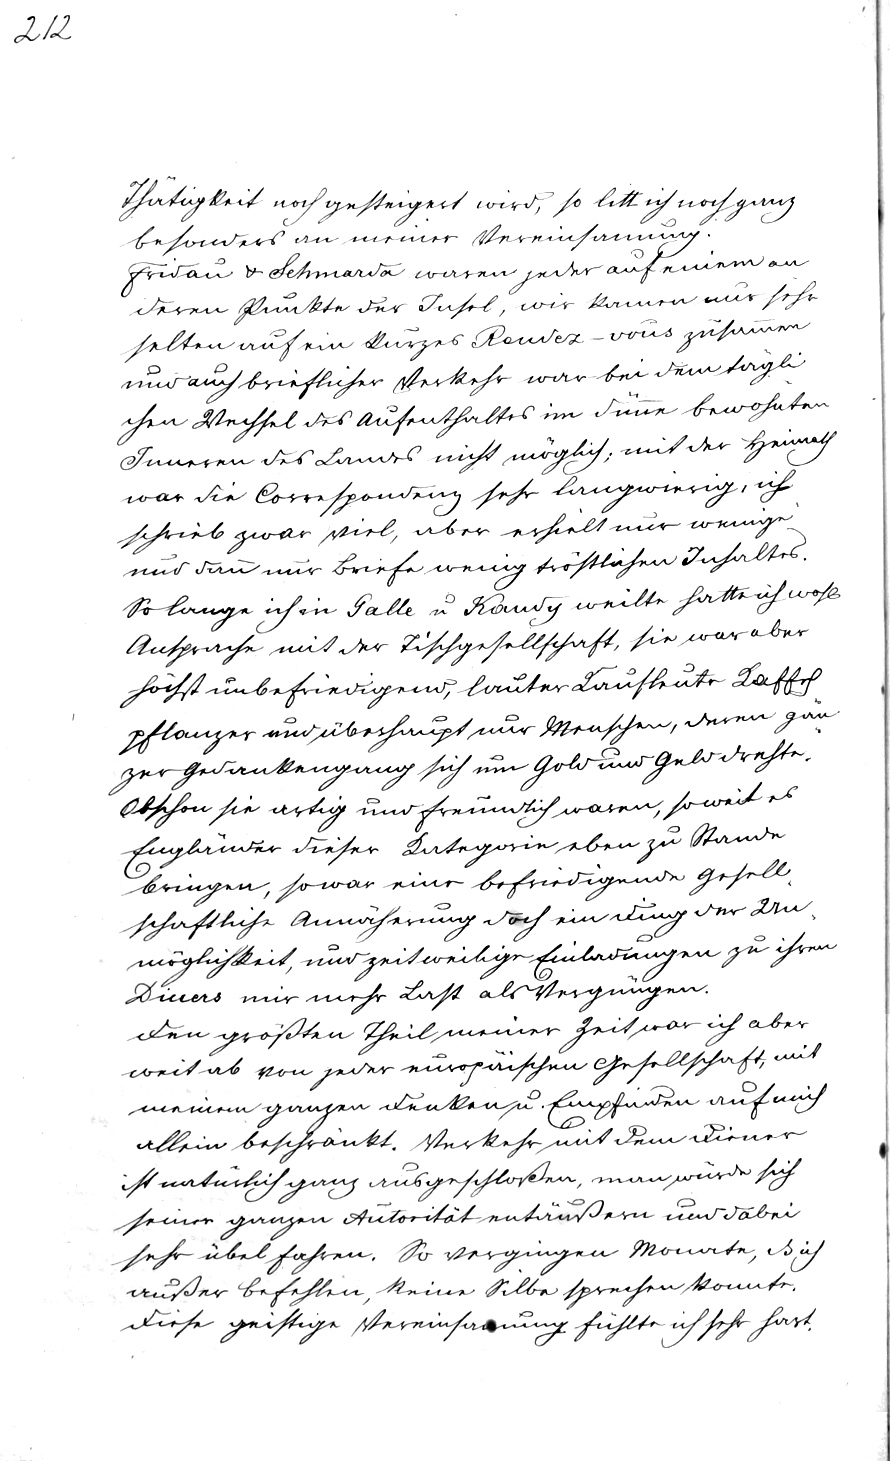 212
Thätigkeit noch gesteigert wird, so litt ich noch ganz
besonders an meiner Vereinsamung.
Fridau & Schmarda waren jeder auf einem an
deren Punkte der Insel, wir kamen nur sehr
selten auf ein kurzes Rendez-vous zusam̄en
und auch brieflicher Verkehr war bei dem tägli
chen Wechsel des Aufenthaltes im dün̄e bewohnten
Inneren des Landes nicht möglich; mit der Heimath
war die Correspondenz sehr langwierig, ich
schrieb zwar viel, aber erhielt nur wenige
und dan̄ nur Briefe wenig tröstlichen Inhaltes.
So lange ich in Galle u Kandy weilte hatte ich wohl
Ansprache mit der Tischgesellschaft, sie war aber
höchst unbefriedigend, lauter Kaufleute Kaffeh
pflanzer und überhaupt nur Menschen, deren gan
zer Gedankengang sich um Gold und Geld drehte.
Obschon sie artig und freundlich waren, soweit es
Engländer dieser Kategorie eben zu Stande
bringen, so war eine befriedigende gesell-
schaftliche Annäherung doch ein Ding der Un-
möglichkeit, und zeitweilige Einladungen zu ihren
Diners mir mehr Last als Vergnügen.
Den größten Theil meiner Zeit war ich aber
weit ab von jeder europäischen Gesellschaft, mit
meinem ganzen Denken u. Empfinden auf mich
allein beschränkt. Verkehr mit dem Diener
ist natürlich ganz ausgeschloßen, man würde sich
seiner ganzen Autorität entäußern und dabei
sehr übel fahren. So vergingen Monate, dß ich
außer Befehlen, keine Silbe sprechen konnte.
Diese geistige Vereinsamung fühlte ich sehr hart.